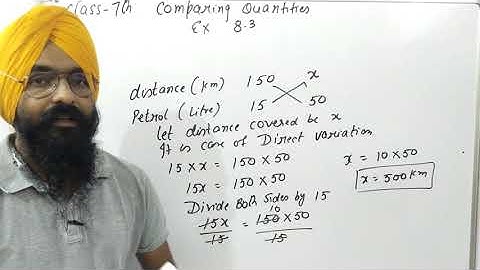 Class-7th Comparing Quantities
Ex 8.3
distance (km) 150 x
Petrol (Litre) 15 50
let distance covered be x
It is case of Direct variation
15 × x = 150 × 50
15x = 150 × 50
Divide Both Sides by 15
15x/15 = 150 10 × 50/15
x = 10 × 50
x = 500 km